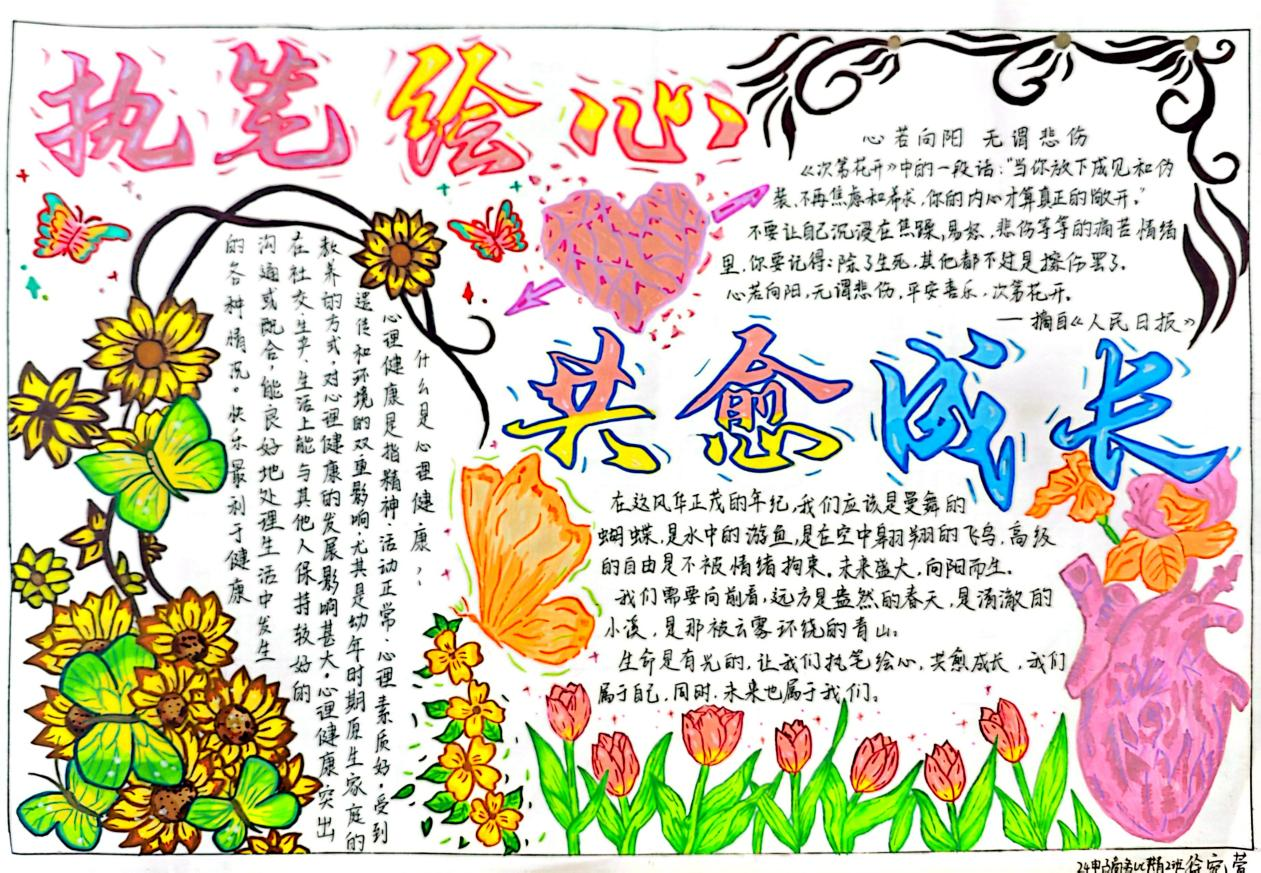 执笔绘心
心若向阳 无谓悲伤
《次第花开》中的一段话:“当你放下成见和伪
装、不再焦虑和希求,你的内心才算真正的敞开。”
不要让自己沉浸在焦躁,易怒,悲伤等等的痛苦情绪
里,你要记得:除了生死,其他都不过是擦伤罢了。
心若向阳,无谓悲伤,平安喜乐,次第花开。
——摘自《人民日报》
共愈成长
什么是心理健康?
心理健康是指精神·活动正常·心理素质好。受到
遗传和环境的双重影响,尤其是幼年时期原生家庭的
教养的方式,对心理健康的发展影响甚大。心理健康突出
在社交、生产、生活上能与其他人保持较好的
沟通或配合,能良好地处理生活中发生
的各种情况。快乐最利于健康
在这风华正茂的年纪,我们应该是曼舞的
蝴蝶,是水中的游鱼,是在空中翱翔的飞鸟,高级
的自由是不被情绪拘束。未来盛大,向阳而生。
我们需要向前看,远方是盎然的春天,是清澈的
小溪,是那被云雾环绕的青山。
生命是有光的,让我们执笔绘心,共愈成长,我们
属于自己,同时,未来也属于我们。